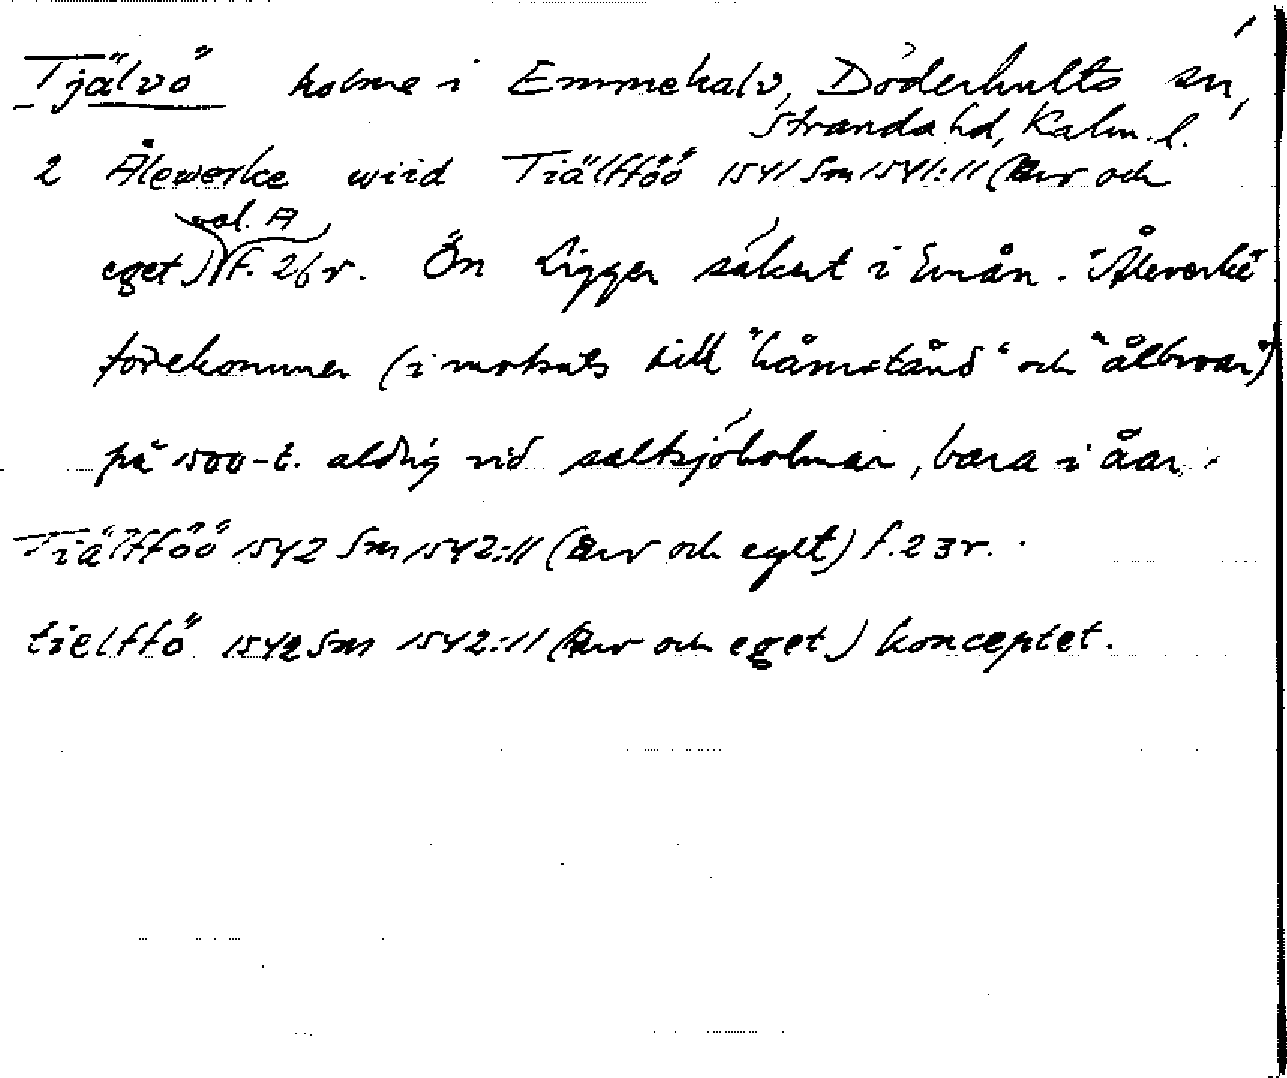 Tjälvö holme i Emmekalv, Döderhults sn,
Stranda hd, Kalm. l.
2 Ålewerke wiid Tiälfföö 1541 Sm 1541:11 (Arv och
vol. A
eget) f. 26 r. Ön ligger säkert i Emån. "Åleverke"
förekommer (i motsats till och "ålbroar")
på 1500-t. aldrig vid saltsjöholmar, bara i åar.
Tiälfföö 1542 Sm 1542:11 (Arv och eget) f. 23 r.
tielffö 1542 Sm 1542:11 (Arv och eget) konceptet.